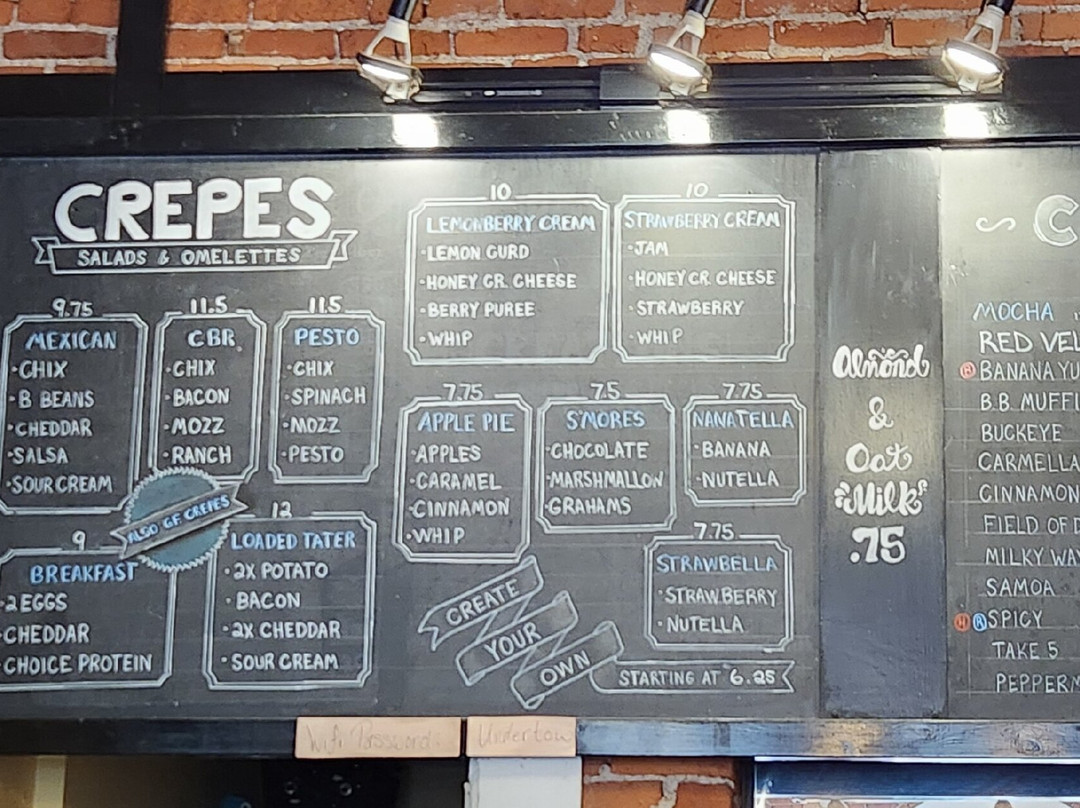 CREPES
SALADS & OMELETTES
9.75
MEXICAN
·CHIX
·B BEANS
·CHEDDAR
·SALSA
·SOUR CREAM
11.5
CBR
·CHIX
·BACON
·MOZZ
·RANCH
11.5
PESTO
·CHIX
·SPINACH
·MOZZ
·PESTO
ALSO GF CREPES
9
BREAKFAST
·2 EGGS
·CHEDDAR
·CHOICE PROTEIN
12
LOADED TATER
·2X POTATO
·BACON
·2X CHEDDAR
·SOUR CREAM
10
LEMONBERRY CREAM
·LEMON CURD
·HONEY CR. CHEESE
·BERRY PUREE
·WHIP
10
STRAWBERRY CREAM
·JAM
·HONEY CR. CHEESE
·STRAWBERRY
·WHIP
7.75
APPLE PIE
·APPLES
·CARAMEL
·CINNAMON
·WHIP
7.5
S'MORES
·CHOCOLATE
·MARSHMALLOW
·GRAHAMS
7.75
NANATELLA
·BANANA
·NUTELLA
7.75
STRAWBELLA
·STRAWBERRY
·NUTELLA
CREATE
YOUR
OWN
STARTING AT 6.25
Almond
&
Oat
Milk
.75
C
MOCHA
RED VEL
H BANANA YU
B.B. MUFFI
BUCKEYE
CARMELLA
CINNAMON
FIELD OF D
MILKY WAY
SAMOA
H R SPICY
TAKE 5
PEPPERM
Wifi Password: Undertow